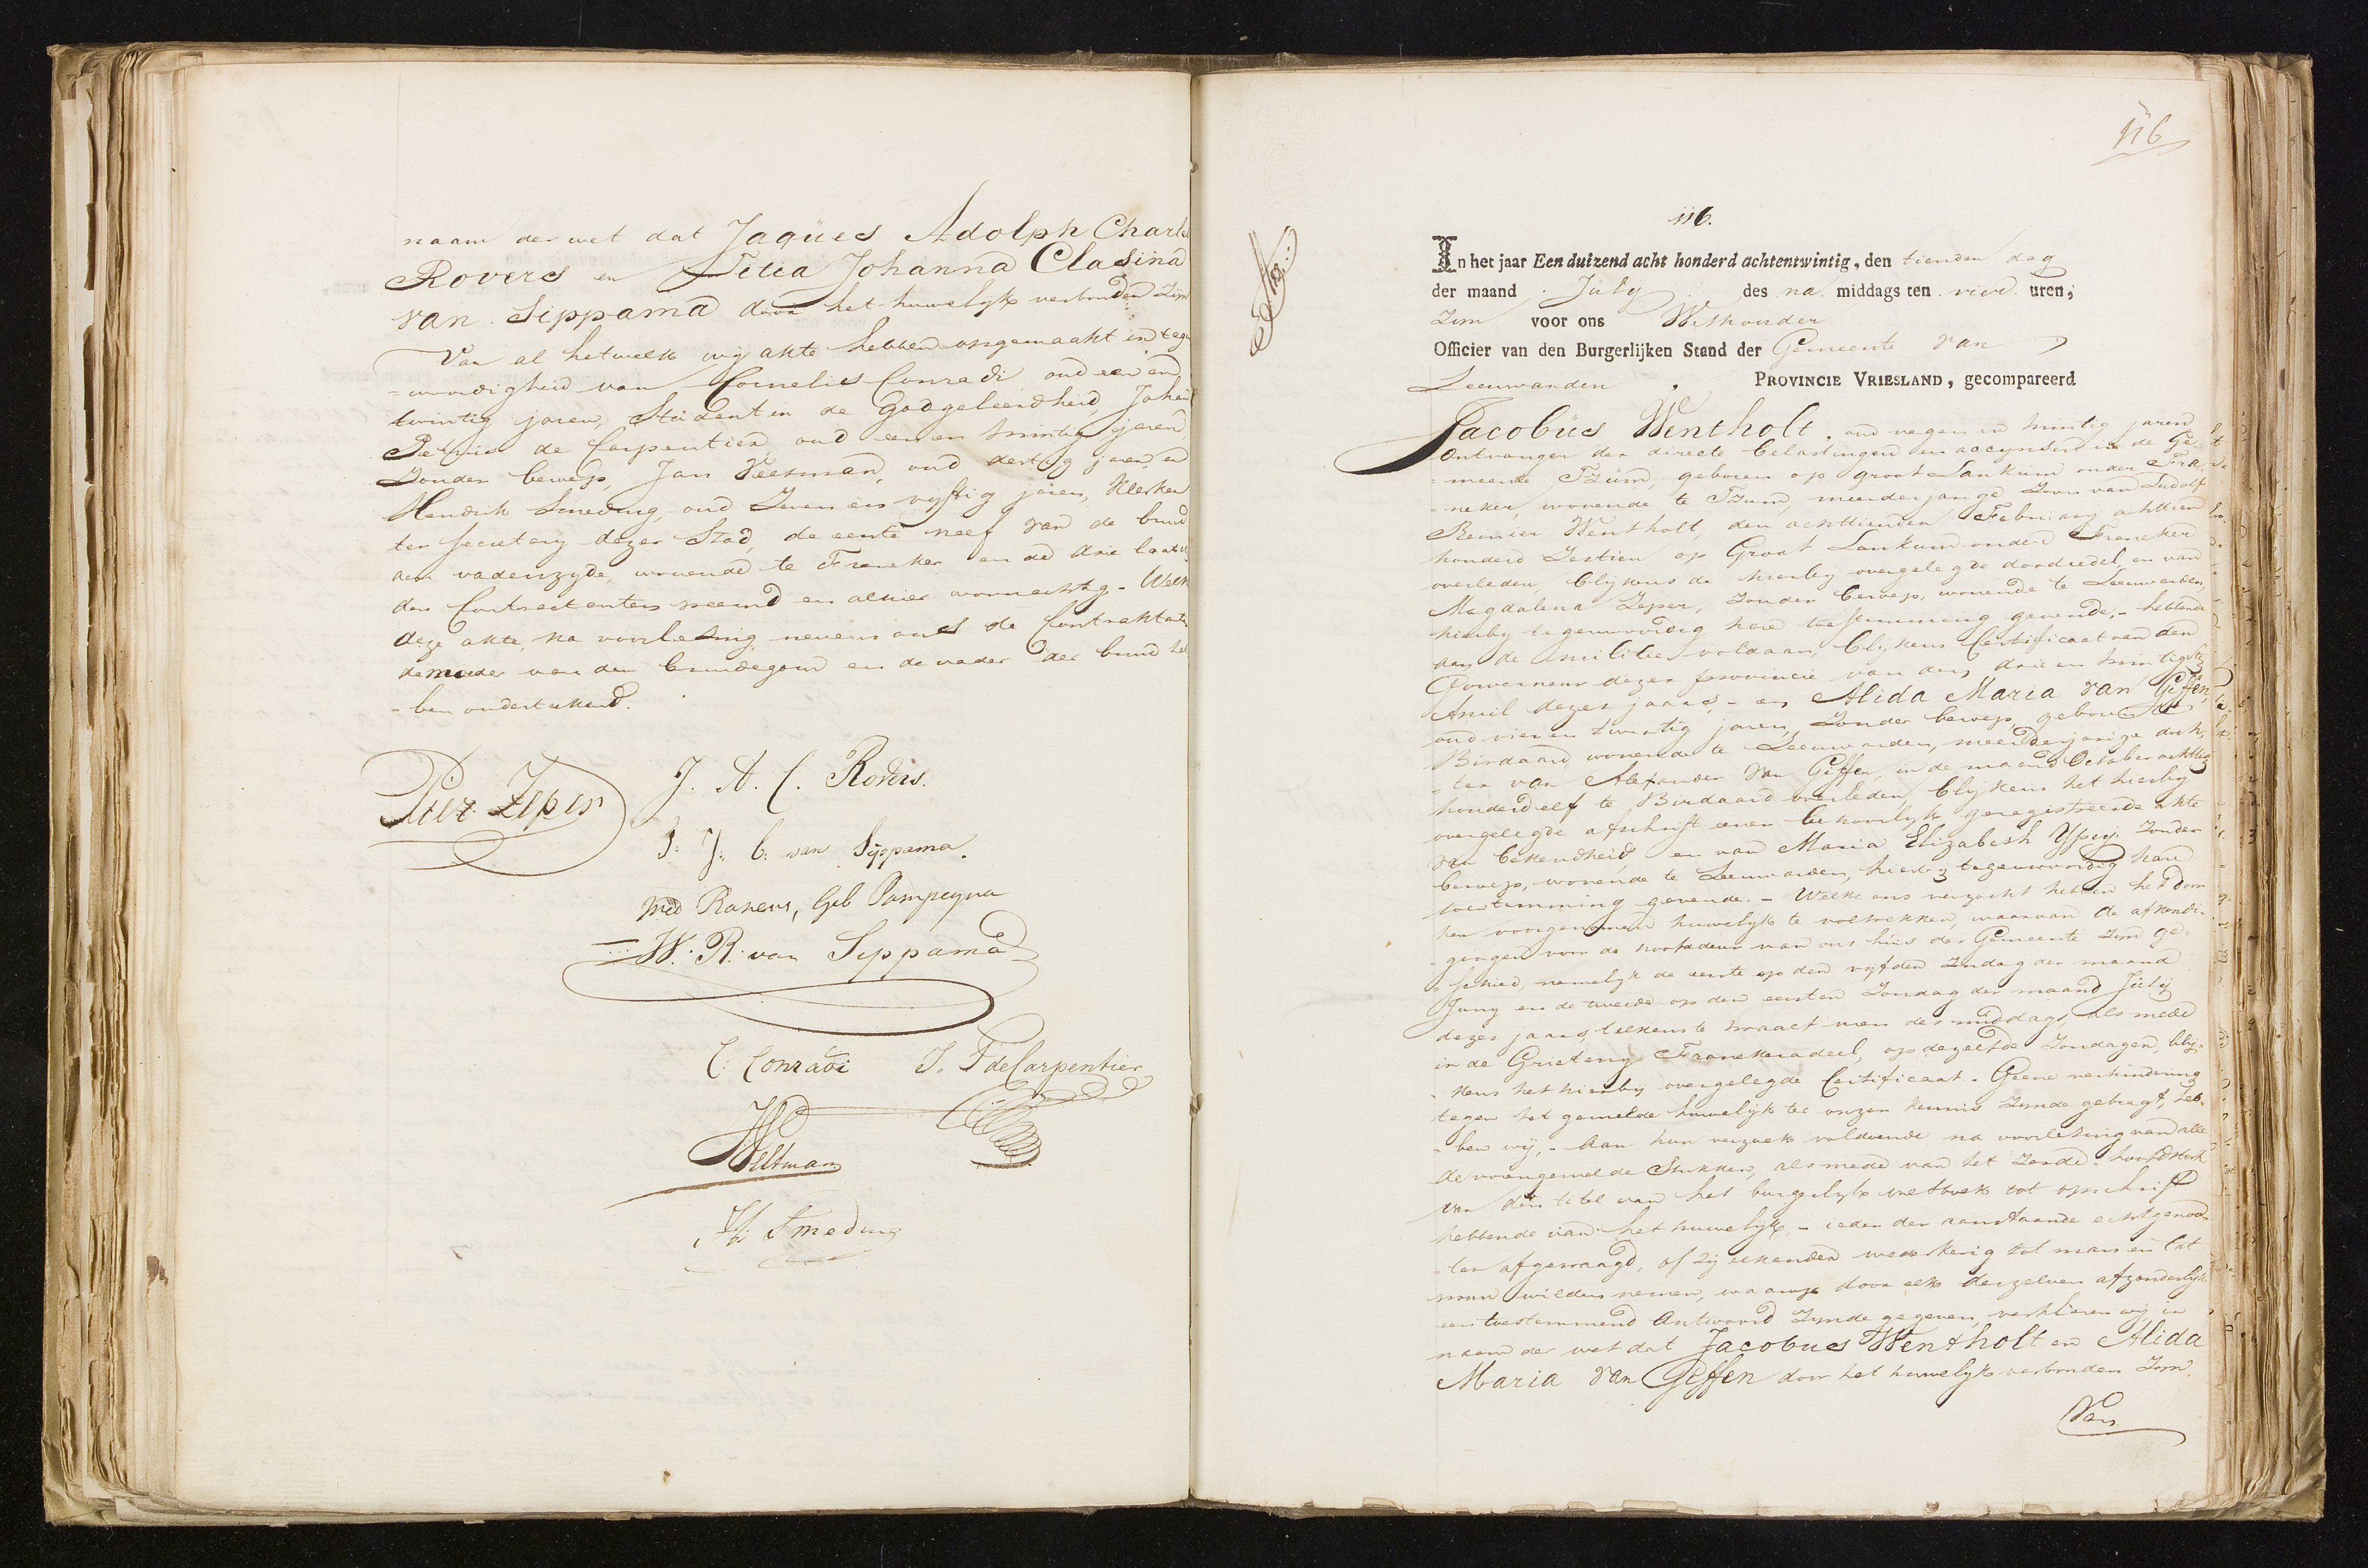 naam der wet dat Jaques Adolph Charles
Rovers en Titia Johanna Clasina
van Sippama door het huwelijk verbonden zijn
Van al hetwelk wij akte hebben opgemaakt in tegen
=woordigheid van Cornelis Conradi oud een en
twintig jaren, Student in de Godgeleerdheid, Johan
de Carpentier, oud een en twintig jaren,
zonder beroep, Jan Veltman, oud dertig jaren, en
Hendrik Smeding, oud zeven en vijftig jaren, klerken
ter secretary dezer Stad, de eerste neef van de bruid
aan vaderzyde, wonende te Franeker en de drie laatste
den Contractenten vreemd en alhier woonachtig. - Welk
deze akte, na voorlezing, nevens ons de Contractante
de moeder van den bruidegom en de vader der bruid heb
-ben ondertekend.
Pier Zeper
J. A. C. Rovers.
T: J: C: van Sippama.
Wed Rovers, Geb Pompejus
W. R. van Sippama
C: Conradi
J. F de Carpentier
JVeltman
H: Smeding
116
116.
In het jaar Een duizend acht honderd achtentwintig, den tienden dag
der maand July des na middags ten vier uren,
Zyn voor ons Wethouder
Officier van den Burgerlijken Stand der Gemeente van
Leeuwarden, PROVINCIE VRIESLAND, gecompareerd
Jacobus Wentholt, oud negen en twintig jaren
Ontvanger der directe belastingen en accynsen in de Ge-
-meente Tzum, geboren op groot Lankum onder Fra-
-neker, wonende te Tzum, meerderjarige Zoon van Ludolf
Reinier Wentholt, den achttienden February achttien
honderd Zestien op Groot Lankum onder Franeker
overleden, blykens de hierby overgelegde doodcedel, en van
Magdalena Zeper, zonder beroep, wonende te Leeuwarden,
hierby tegenwoordig hare toestemming gevende, - hebbende
aan de militie voldaan, blykens Certificaat van den
Gouverneur dezer provincie van den drie en twintigsten
April dezes jaars, - en Alida Maria van Giffen,
oud vier en twintig jaren, zonder beroep, geboren te
Birdaard, wonende te Leeuwarden, meerderjarige doch-
-ter van Alexander van Giffen, in de maand October achttien
honderd elf te Birdaard overleden, blykens het hierby
overgelegde afschrift eener behoorlyk geregistreerde akte
van bekendheid, en van Maria Elizabeth Ypey, zonder
beroep, wonende te Leeuwarden, hierby tegenwoordig hare
toestemming gevende. - Welke ons verzocht hebben het door
hen voorgenomen huwelyk te voltrekken, waarvan de afkondi-
-gingen voor de hoofddeur van ons huis der Gemeente zyn ge-
=schied, namelyk de eerste op den vyfden Zondag der maand
Juny en de tweede op den eersten Zondag der maand July
dezes jaars, telkens te twaalf uren des middags, als mede
in de Grieteny Franekeradeel, op dezelfde Zondagen, bly-
-kens het hierby overgelegde Certificaat. Geene verhindering
tegen het gemelde huwelyk ter onzer kennis zynde gebragt, heb-
-ben wy, - aan hun verzoek voldoende na voorlezing van alle
de voorengemelde Stukken, als mede van het Zesde hoofdstuk
van den titel van het burgerlyk wetboek tot opschrift
hebbende van het huwelyk, - ieder der aanstaande echtgenoo-
-ten afgevraagd, of zy elkander wederkerig tot man en tot
vrouw wilden nemen, waarop door elk derzelven afzonderlyk
een toestemmend Antwoord zynde gegeven, verklaren wy, in
naam der wet dat Jacobus Wentholt en Alida
Maria van Giffen door het huwelyk verbonden zyn.
Van